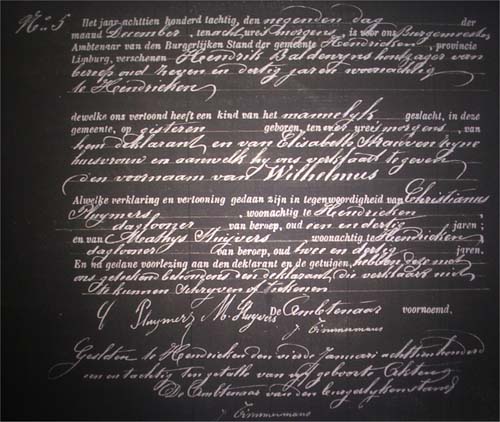 N.o 5 Het jaar achttien honderd tachtig, den negenden dag der
maand December, tenacht ures morgens is voor ons Burgemeester
Ambtenaar van den Burgerlijken Stand der gemeente Hendrieken, provincie
Limburg, verschenen Hendrik Baldewyns houtzager van
beroep oud negen en dertig jaren woonachtig
te Hendrieken
dewelke ons vertoond heeft een kind van het mannelyk geslacht, in deze
gemeente, op gisteren geboren, ten vier ures morgens, van
hem deklarant en van Elisabeth Strauven zyne
huisvrouw en aan welk hy ons verklaart te geven
den voornaam van Wilhelmus
Alwelke verklaring en vertooning gedaan zijn in tegenwoordigheid van Christianus
Pluymers, woonachtig te Hendrieken,
daglooner van beroep, oud een en dertig jaren;
en van Mathys Kuyvers woonachtig te Hendrieken
daglooner van beroep, oud twee en dertig jaren.
En na gedane voorlezing aan den deklarant en de getuigen, hebben deze met
ons geteekend behoudens den deklarant, die verklaart niet
te kunnen schryven of teekenen
C Pluymers M. Kuyvers De Ambtenaar voornoemd,
J Zimmermans
Gesloten te Hendrieken den vierde Januari achttienhonderd
een en tachtig ten getalle van vyf geboorte Akten
De Ambtenaar van den burgerlykenstand
J Zimmermans